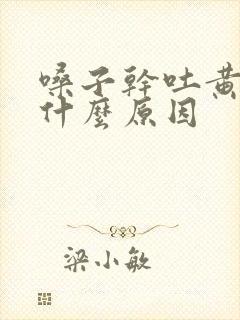 嗓子幹吐黄
什麼原因
梁小敏